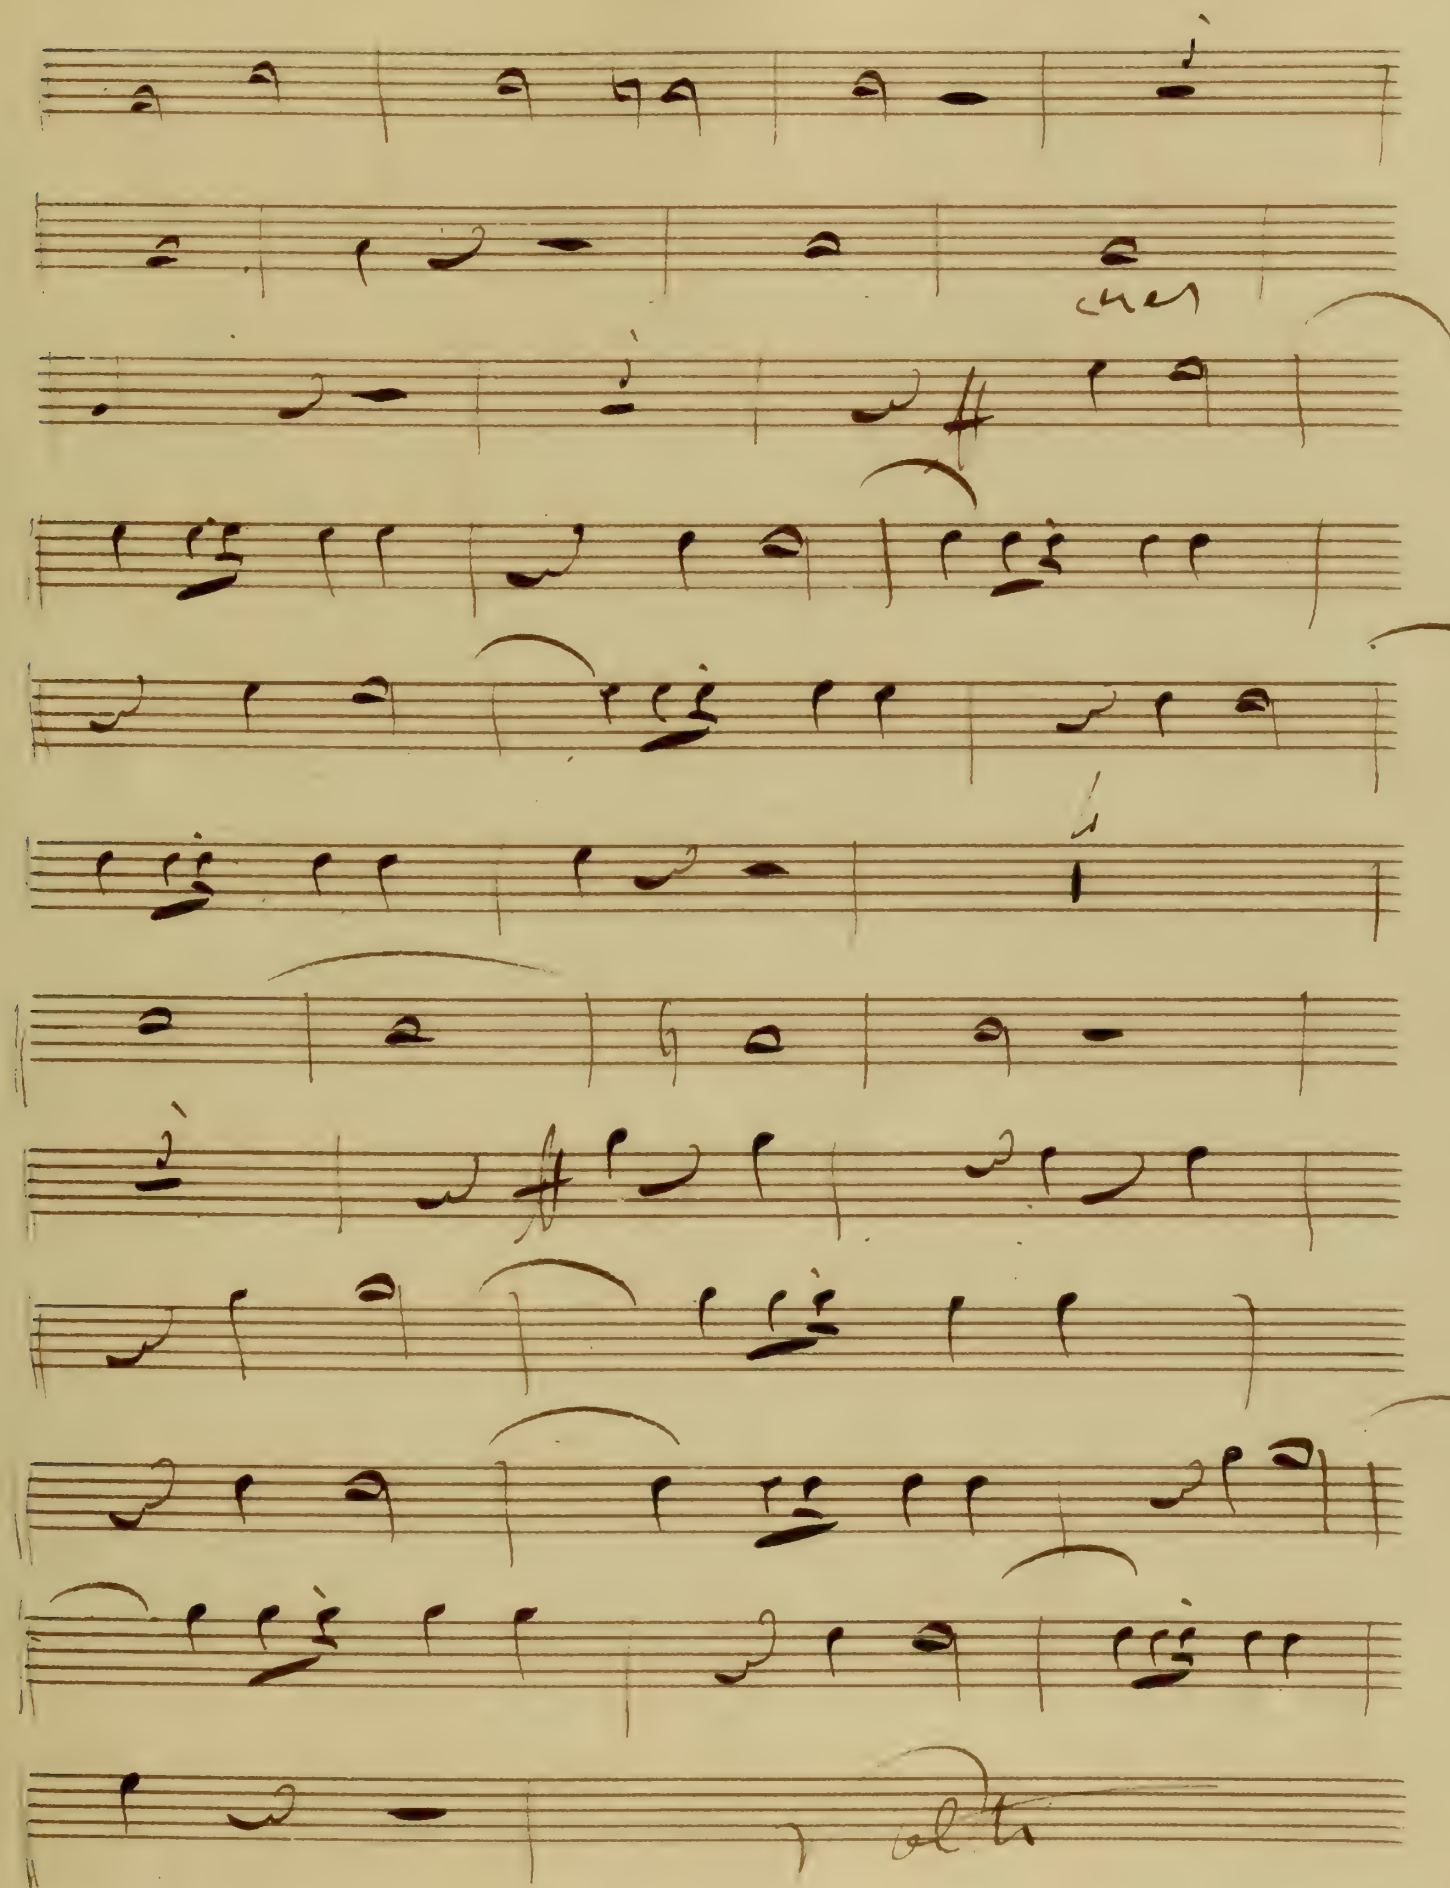 cres
volti